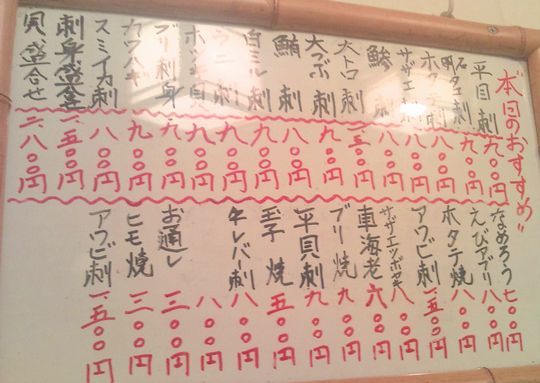 本日のおすすめ"
平目刺 九〇〇円
明石タコ刺 九〇〇円
ホタテ刺 八〇〇円
サザエ刺 八〇〇円
鯵刺
大トロ刺
大つブ刺 九〇〇円
鮪刺 八〇〇円
白ミル刺 九〇〇円
ウニ刺 九〇〇円
ホッキ貝 九〇〇円
ブリ刺身 九〇〇円
カワハギ 九〇〇円
スミイカ刺 八〇〇円
刺身盛合 一、五〇〇円
貝盛合せ 二八〇〇円
なめろう 七〇〇円
えびアブリ 八〇〇円
ホタテ焼 八〇〇円
アワビ刺 一、五〇〇円
サザエツボヤキ 八〇〇円
車海老 六〇〇円
ブリ焼 九〇〇円
平貝刺 九〇〇円
玉子焼 五〇〇円
牛レバ刺 八〇〇円
八〇〇円
お通し 三〇〇円
ヒモ焼 三〇〇円
アワビ刺 一、五〇〇円